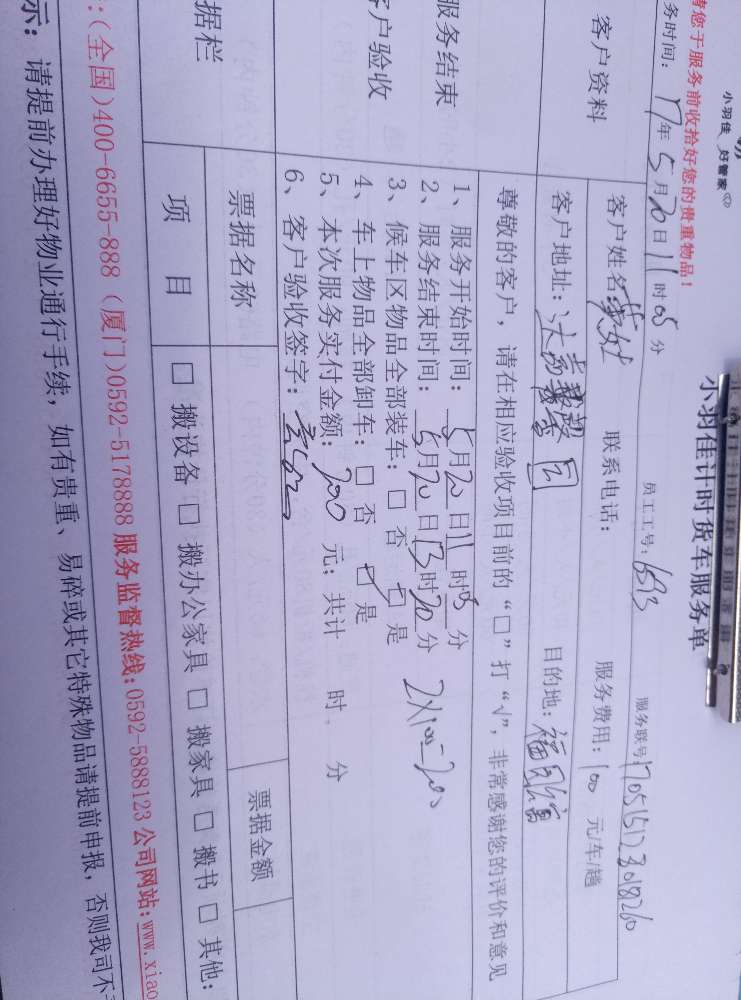 小羽佳 好管家
小羽佳计时货车服务单
请您于服务前收拾好您的贵重物品！
务时间：17年5月20日11时05分 员工工号：6593 服务联号：
客户资料
客户姓名 联系电话： 服务费用：100 元/车/趟
客户地址： 目的地：
尊敬的客户，请在相应验收项目前的“□”打“√”，非常感谢您的评价和意见
服务结束
客户验收
1、服务开始时间：5月20日11时 分
2、服务结束时间：5月20日13时20分
2×100=200
3、候车区物品全部装车：□ 否 □ 是
4、车上物品全部卸车：□ 否 □ 是
5、本次服务实付金额：200 元；共计 时 分
6、客户验收签字：
据栏
票据名称 票据金额
项 目 □ 搬设备 □ 搬办公家具 □ 搬家具 □ 搬书 □ 其他：
：(全国)400-6655-888（厦门)0592-5178888 服务监督热线:0592-5888123 公司网站:www.xiao
示：请提前办理好物业通行手续，如有贵重、易碎或其它特殊物品请提前申报，否则我司不